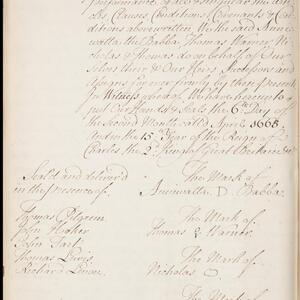 Clauses Conditions Covenants & Con-
ditions above written We the said Anne-
watta, the Babba, Thomas Warner, Ni-
cholas & Thomas do on behalf of Our
selves their & Our Heirs, Successors and
firmly by these presents
In Witness whereof We have hereunto
put Our Hands & Seals the 6th Day of
the Second Month called April 1668
And in the 15th Year of the Reign of
Charles the 2d King of Great Brittaine &c
Seald and deliver'd
in the presence of
Thomas Pilgrim
John
John
Thomas
Richard
The Mark of
Anniwatta D Babba
The Mark of
Thomas & Warner
The Mark of
Nicholas
The Mark of